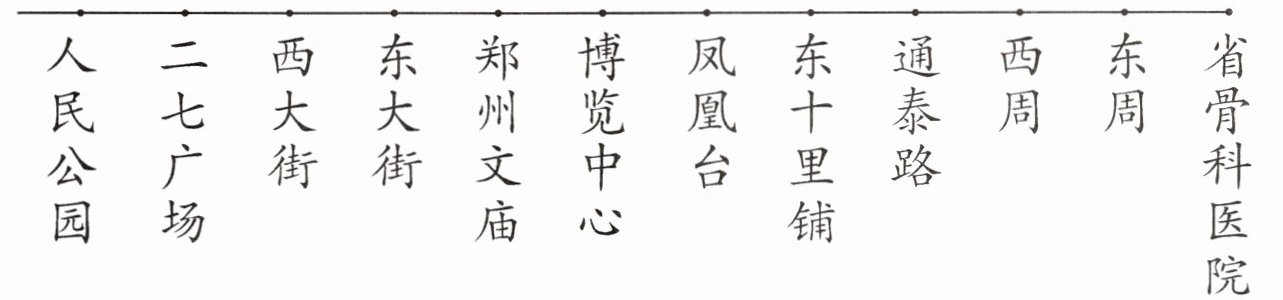 人民公园
二七广场
西大街
东大街
郑州文庙
博览中心
凤凰台
东十里铺
通泰路
西周
东周
省骨科医院